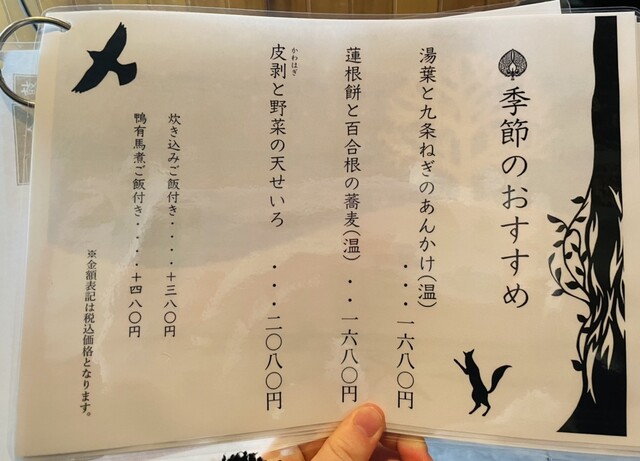 季節のおすすめ
湯葉と九条ねぎのあんかけ(温)・・・一六八〇円
蓮根餅と百合根の蕎麦(温)・・一六八〇円
皮剥と野菜の天せいろ・・・二〇八〇円
かわはぎ
炊き込みご飯付き・・・・十三八〇円
鴨有馬煮ご飯付き・・・・十四八〇円
※金額表記は税込価格となります。